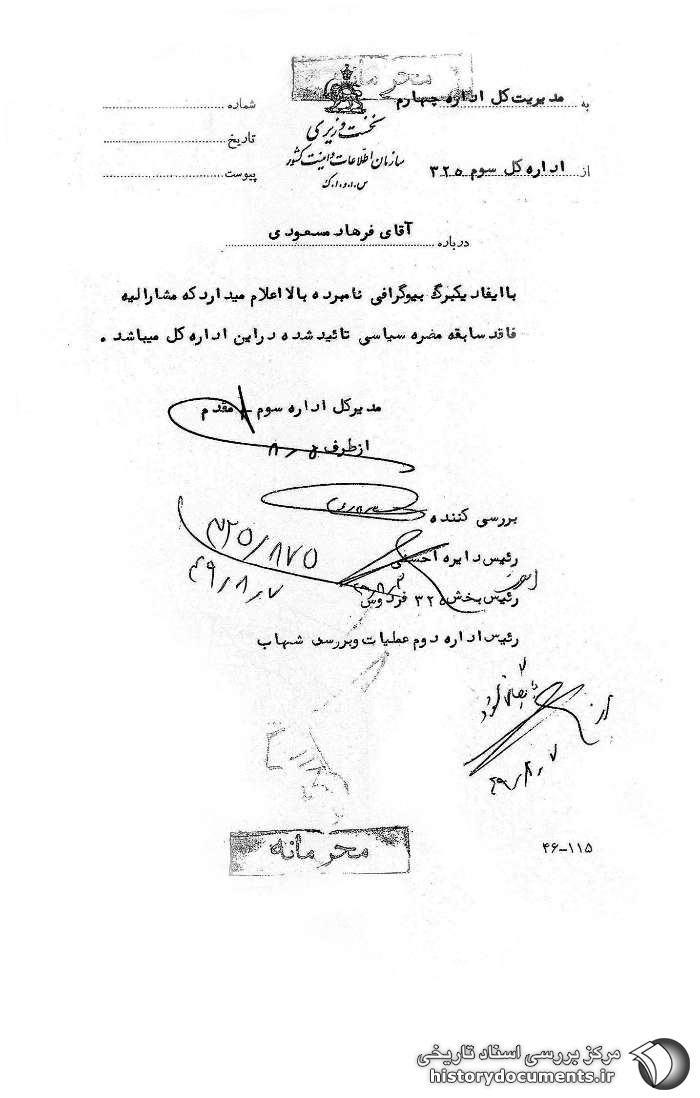 محرمانه
به مدیریت کل اداره چهارم
از اداره کل سوم ۳۲۵
نخست وزیری
سازمان اطلاعات و امنیت کشور
س.ا.و.ا.ک
شماره
تاریخ
پیوست
درباره آقای فرهاد مسعودی
با ایفاد یکبرگ بیوگرافی نامبرده بالا اعلام میدارد که مشارالیه
فاقد سابقه مضره سیاسی تائید شده در این اداره کل میباشد .
مدیر کل اداره سوم مقدم
از طرف
بررسی کننده
۳۲۵/۸۷۵
رئیس دایره
۴۹/۸/۷
رئیس بخش ۳۲۵ فردوس
رئیس اداره دوم عملیات و بررسی شهاب
۴۹/۸/۷
محرمانه
۴۶-۱۱۵
مرکز بررسی اسناد تاریخی
historydocuments.ir